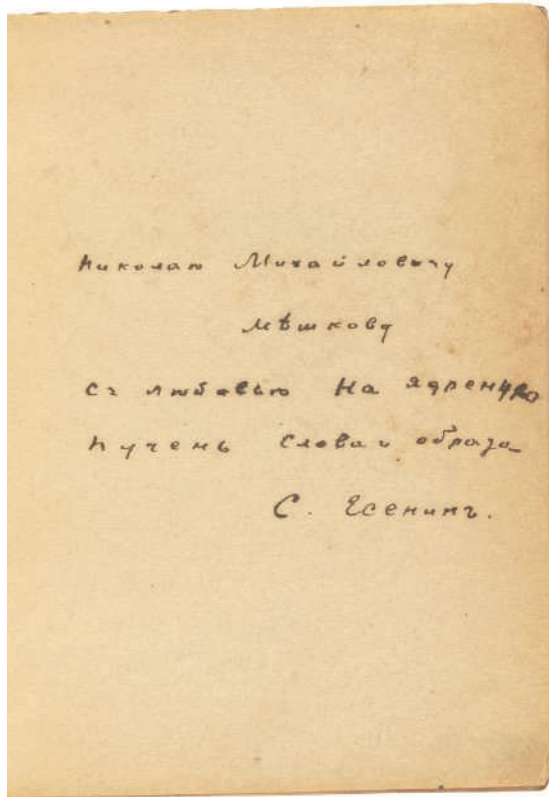 Николаю Михайловичу
Мѣшкову
Съ любовью на ядренную
пучень слова и образа
С. Есенинъ.